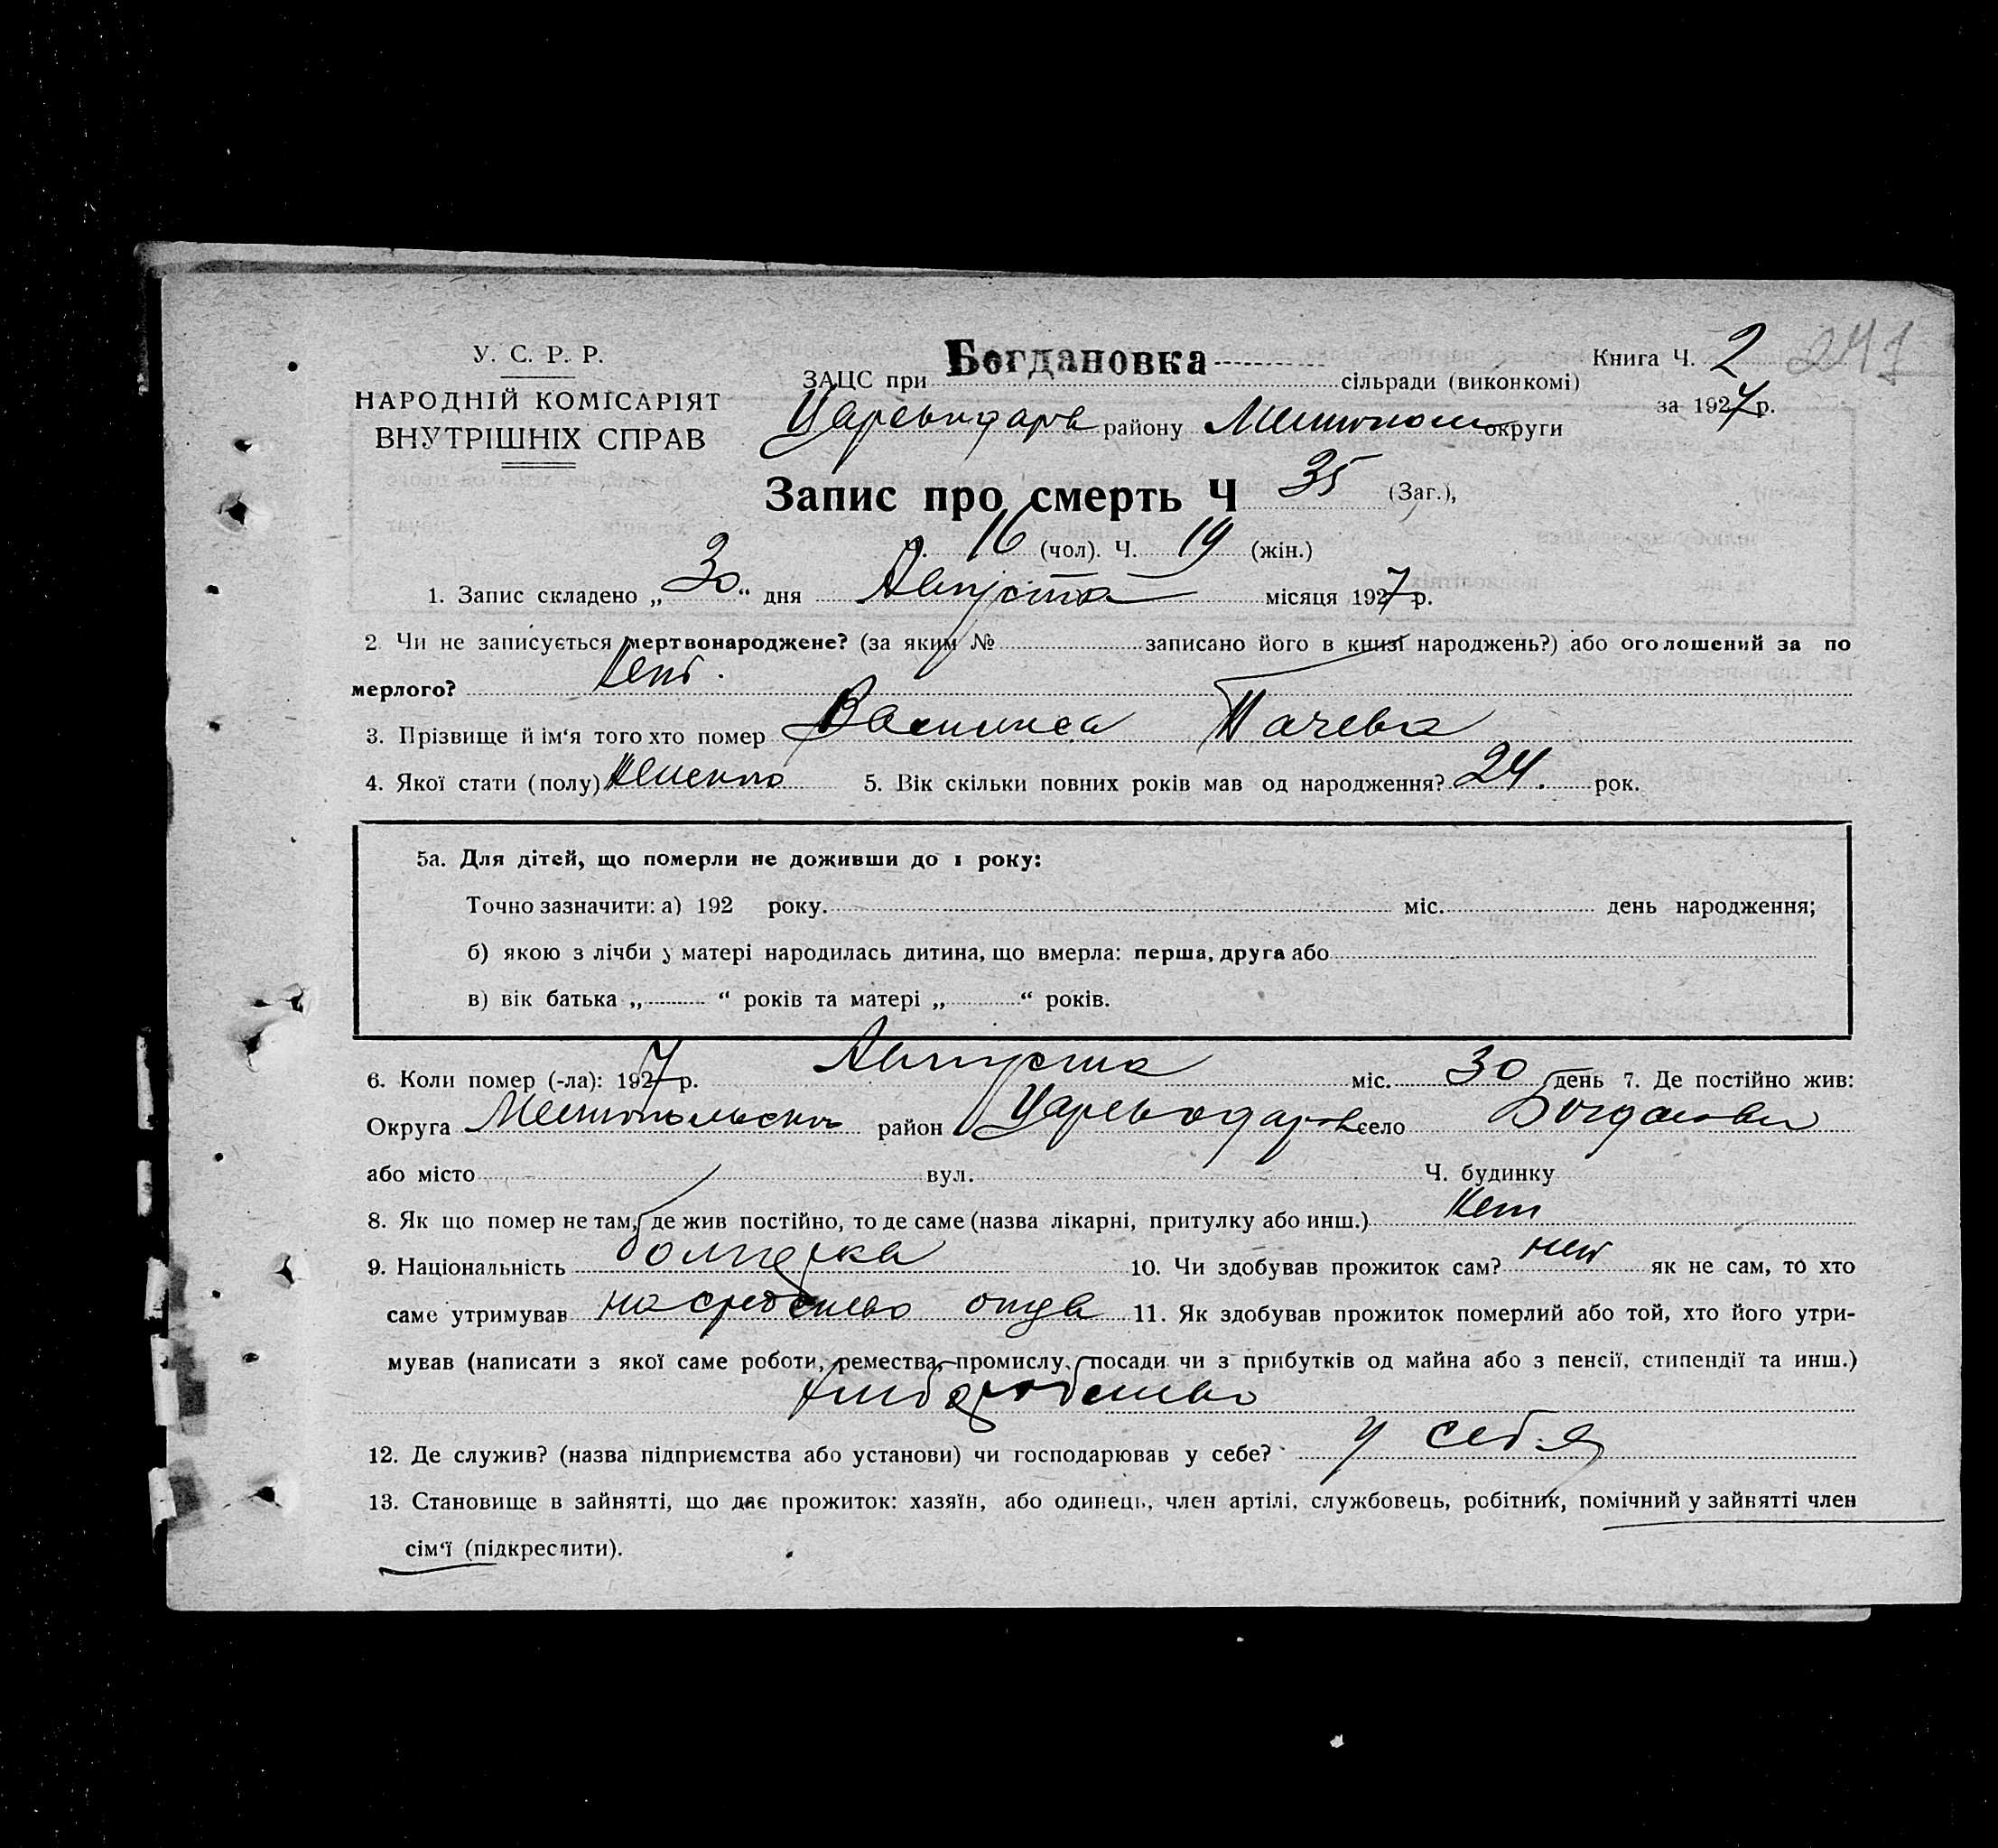 У. С. Р. Р.
НАРОДНІЙ КОМІСАРІЯТ
ВНУТРІШНІХ СПРАВ
Книга Ч. 2 241
за 1927 р.
ЗАЦС при Богдановка сільради (виконкомі)
району округи
Запис про смерть Ч 35 (Заг.),
Ч. 16 (чол). Ч. 19 (жін.)
1. Запис складено „30“ дня Августа місяця 1927 р.
2. Чи не записується мертвонароджене? (за яким № записано його в книзі народжень?) або оголошений за по
мерлого? Нет.
3. Прізвище й ім‘я того хто помер Василиса Тачева
4. Якої стати (полу) Женско 5. Вік скільки повних років мав од народження? 24. рок.
5а. Для дітей, що померли не доживши до 1 року:
Точно зазначити: а) 192 року. міс. день народження;
б) якою з лічби у матері народилась дитина, що вмерла: перша, друга або
в) вік батька „ “ років та матері „ “ років.
6. Коли помер (-ла): 1927 р. Августа міс. 30 день 7. Де постійно жив:
Округа район село
або місто вул. Ч. будинку
8. Як що помер не там, де жив постійно, то де саме (назва лікарні, притулку або инш.) Нет
9. Національність болгарка 10. Чи здобував прожиток сам? нет як не сам, то хто
саме утримував на средство отца 11. Як здобував прожиток померлий або той, хто його утри-
мував (написати з якої саме роботи, ремества, промислу, посади чи з прибутків од майна або з пенсії, стипендії та инш.)
хлибаробство
12. Де служив? (назва підприємства або установи) чи господарював у себе? у себя
13. Становище в зайнятті, що дає прожиток: хазяїн, або одинець, член артілі, службовець, робітник, помічний у зайнятті член
сім‘ї (підкреслити).